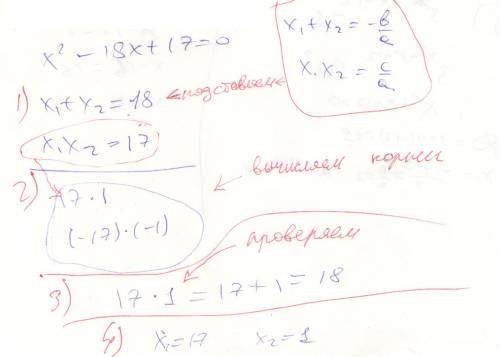 x² - 18x + 17 = 0
x₁ + x₂ = -b/a
x₁ x₂ = c/a
1) x₁ + x₂ = 18 подставляем
x₁x₂ = 17
2) 17 · 1
вычисляем корни
(-17) · (-1)
проверяем
3) 17 · 1 = 17 + 1 = 18
4) x₁ = 17 x₂ = 1